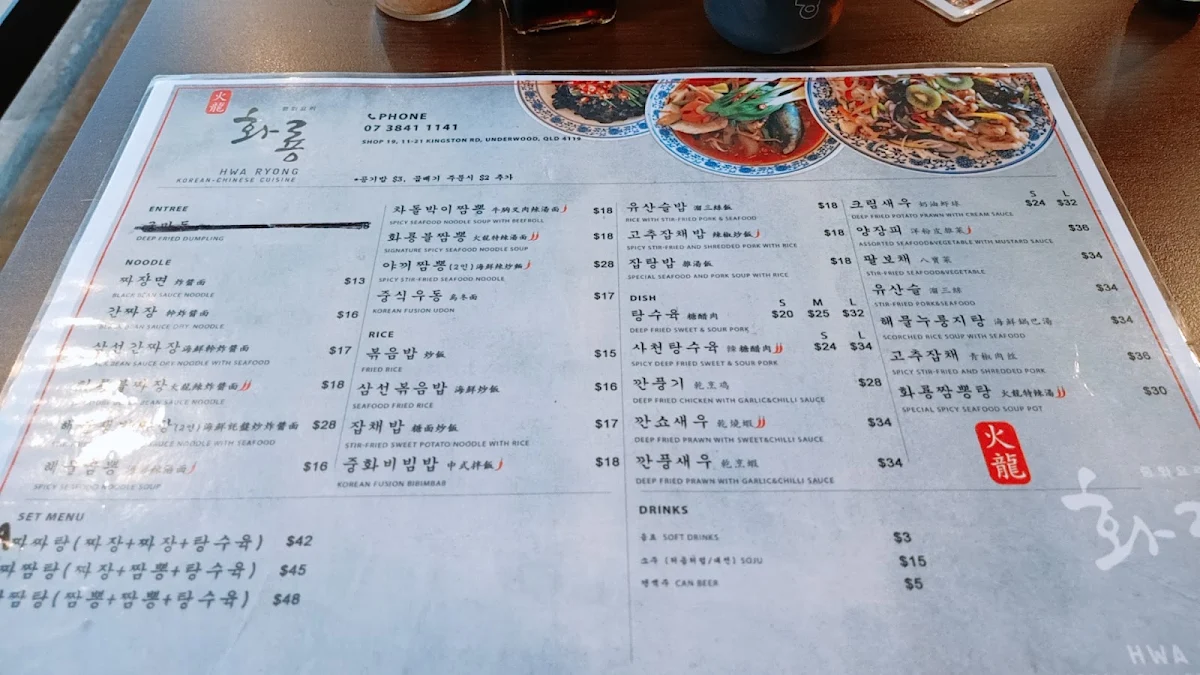 火龍
화룡
HWA RYONG
KOREAN-CHINESE CUISINE
PHONE
07 3841 1141
SHOP 19, 11-21 KINGSTON RD, UNDERWOOD, QLD 4119
*공기밥 $3, 곱빼기 주문시 $2 추가
ENTREE
DEEP FRIED DUMPLING
NOODLE
짜장면 炸醬面 $13
BLACK BEAN SAUCE NOODLE
간짜장 幹炸醬面 $16
BEAN SAUCE DRY NOODLE
삼선간짜장 海鮮幹炸醬面 $17
BEAN SAUCE DRY NOODLE WITH SEAFOOD
불짜장 火龍辣炸醬面 $18
BEAN SAUCE NOODLE
(2인) $28
SAUCE NOODLE WITH SEAFOOD
해물짬뽕 $16
SPICY SEAFOOD NOODLE SOUP
차돌박이짬뽕 牛胸叉肉辣湯面 $18
SPICY SEAFOOD NOODLE SOUP WITH BEEF ROLL
화룡불짬뽕 火龍特辣湯面 $18
SIGNATURE SPICY SEAFOOD NOODLE SOUP
야끼짬뽕 (2인) 海鮮辣炒飯 $28
SPICY STIR-FRIED SEAFOOD NOODLE
중식우동 烏冬面 $17
KOREAN FUSION UDON
RICE
볶음밥 炒飯 $15
FRIED RICE
삼선볶음밥 海鮮炒飯 $16
SEAFOOD FRIED RICE
잡채밥 雜面炒飯 $17
STIR-FRIED SWEET POTATO NOODLE WITH RICE
중화비빔밥 中式拌飯 $18
KOREAN FUSION BIBIMBAR
유산슬밥 溜三絲飯 $18
RICE WITH STIR-FRIED PORK & SEAFOOD
고추잡채밥 辣椒炒飯 $18
SPICY STIR-FRIED AND SHREDDED PORK WITH RICE
잡탕밥 雜湯飯 $18
SPECIAL SEAFOOD AND PORK SOUP WITH RICE
DISH S M L
탕수육 糖醋肉 $20 $25 $32
DEEP FRIED SWEET & SOUR PORK
S L
사천탕수육 辣糖醋肉 $24 $34
SPICY DEEP FRIED SWEET & SOUR PORK
깐풍기 乾烹鸡 $28
DEEP FRIED CHICKEN WITH GARLIC&CHILLI SAUCE
깐쇼새우 乾燒蝦 $34
DEEP FRIED PRAWN WITH SWEET&CHILLI SAUCE
깐풍새우 乾烹蝦 $34
DEEP FRIED PRAWN WITH GARLIC&CHILLI SAUCE
S L
크림새우 奶油虾球 $24 $32
DEEP FRIED POTATO PRAWN WITH CREAM SAUCE
양장피 洋粉皮雜菜 $36
ASSORTED SEAFOOD&VEGETABLE WITH MUSTARD SAUCE
팔보채 八寶菜 $34
STIR-FRIED SEAFOOD&VEGETABLE
유산슬 溜三絲 $34
STIR-FRIED PORK&SEAFOOD
해물누룽지탕 海鮮鍋巴湯 $34
SCORCHED RICE SOUP WITH SEAFOOD
고추잡채 青椒肉丝 $36
SPICY STIR-FRIED AND SHREDDED PORK
화룡짬뽕탕 火龍特辣湯 $30
SPECIAL SPICY SEAFOOD SOUP POT
火龍
SET MENU
짜짜탕(짜장+짜장+탕수육) $42
짜짬탕(짜장+짬뽕+탕수육) $45
짬탕(짬뽕+짬뽕+탕수육) $48
DRINKS
음료 SOFT DRINKS $3
소주 (처음처럼/새면) SOJU $15
캔맥주 CAN BEER $5
화
HWA